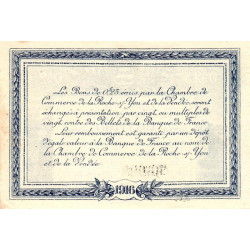 Les Bons de 0f25 émis par la Chambre de
Commerce de la Roche-s/-Yon et de la Vendée, seront
échangés à présentation par vingt, ou multiples de
vingt contre des Billets de la Banque de France.
Leur remboursement est garanti par un dépôt
d'égale valeur à la Banque de France au nom de
la Chambre de Commerce de la Roche-s/-Yon
et de la Vendée
1916